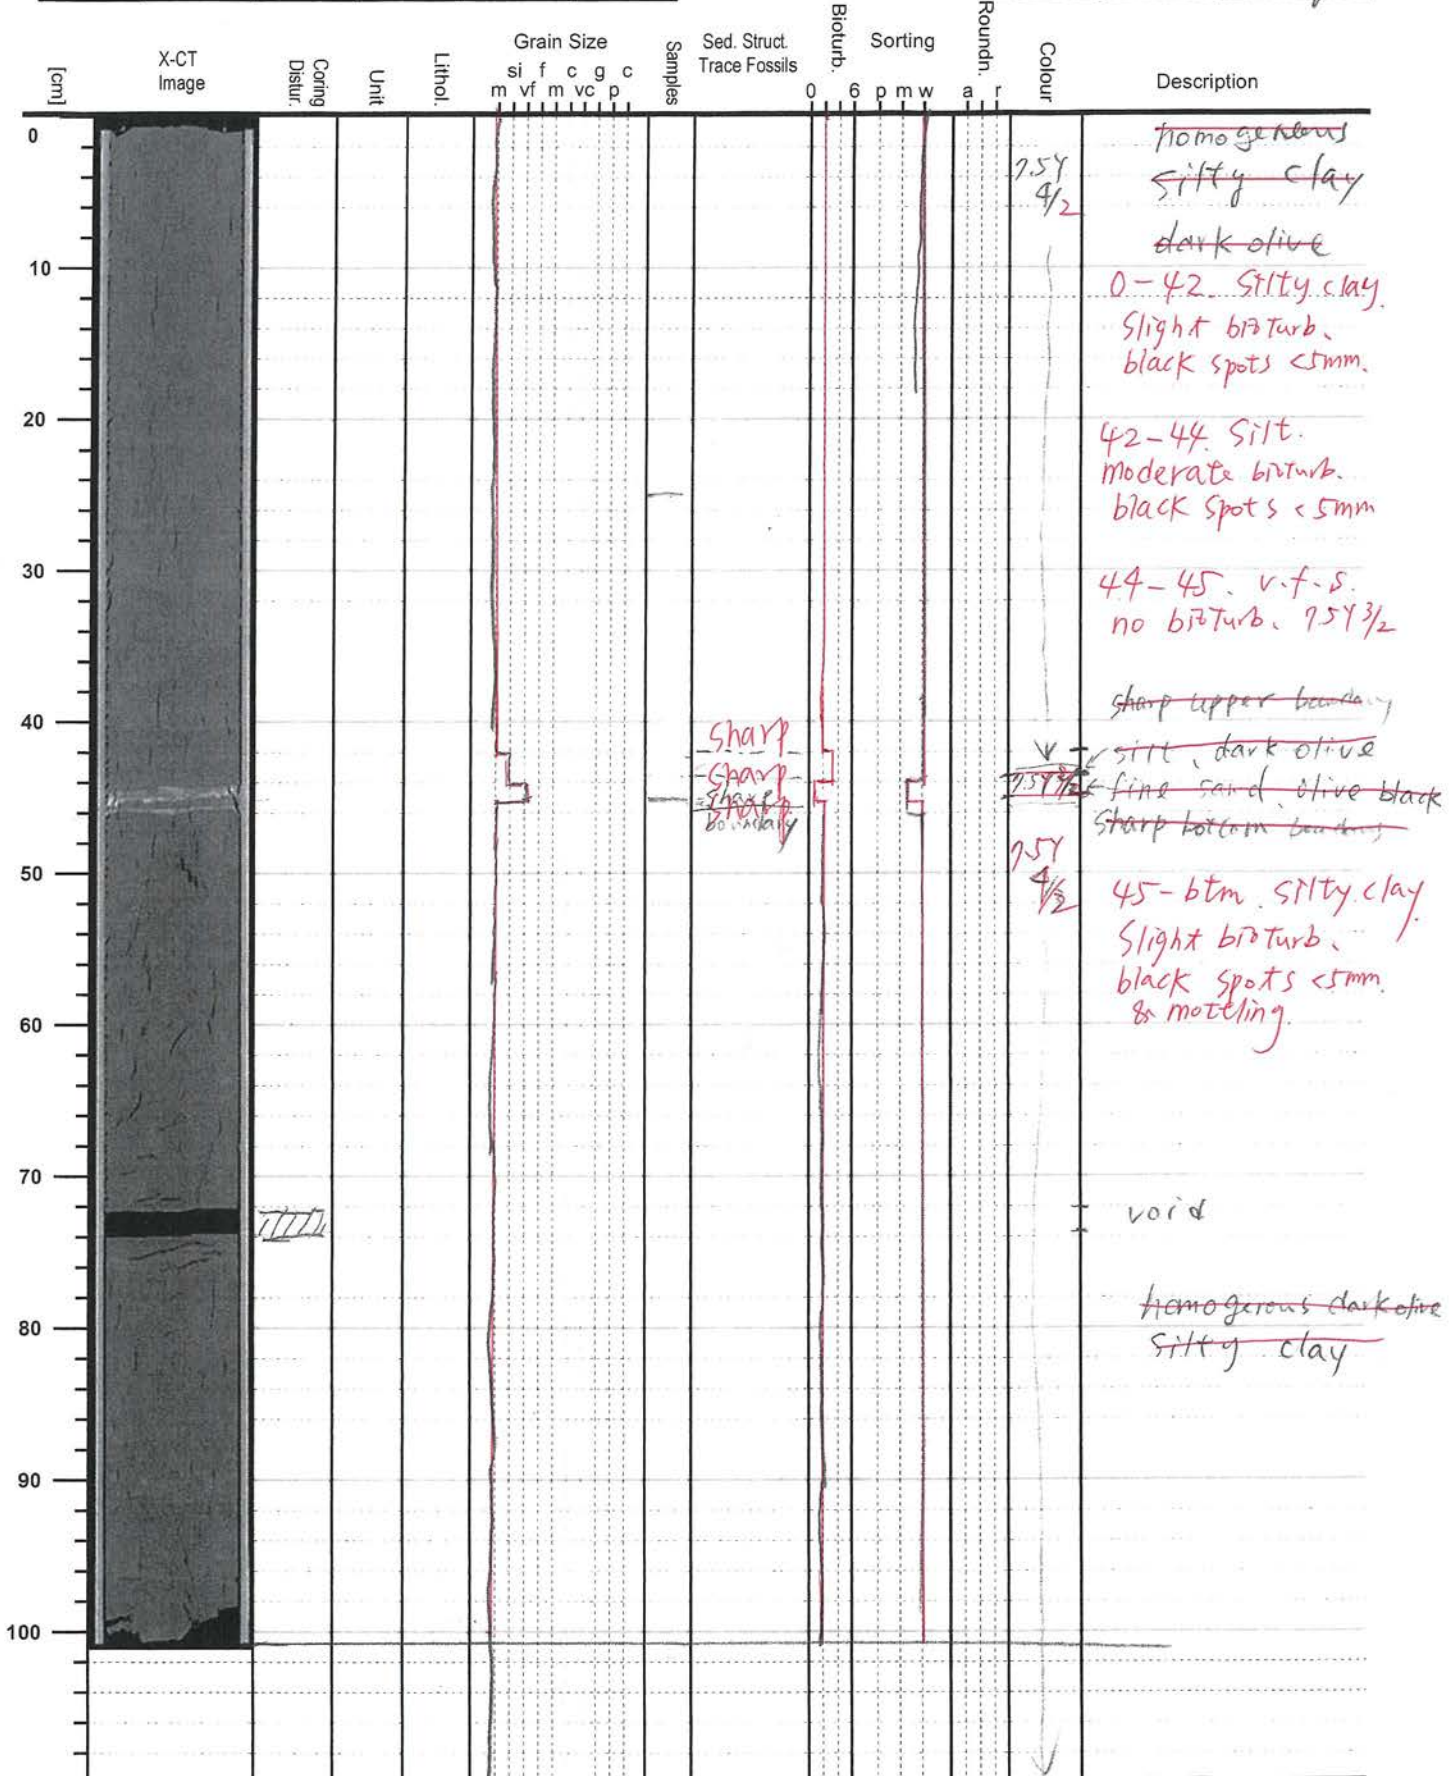 [cm]
X-CT
Image
Coring
Distur.
Unit
Lithol.
Grain Size
si f c g c
m vf m vc p
Samples
Sed. Struct.
Trace Fossils
Bioturb.
0 6
Sorting
p m w
Roundn.
a r
Colour
Description
0
10
20
30
40
50
60
70
80
90
100
7.5Y
4/2
homogeneous
silty clay
dark olive
0-42. Silty clay.
Slight bioturb.
black spots <5mm.
42-44. Silt.
moderate bioturb.
black spots <5mm
44-45. v.f.s.
no bioturb. 7.5Y 3/2
sharp upper boundary
silt, dark olive
fine sand, olive black
Sharp bottom boundary
sharp
sharp
sharp
sharp
boundary
7.5Y 3/2
7.5Y
4/2
45-btm. silty clay
Slight bioturb.
black spots <5mm.
& mottling.
void
homogerous dark olive
silty clay